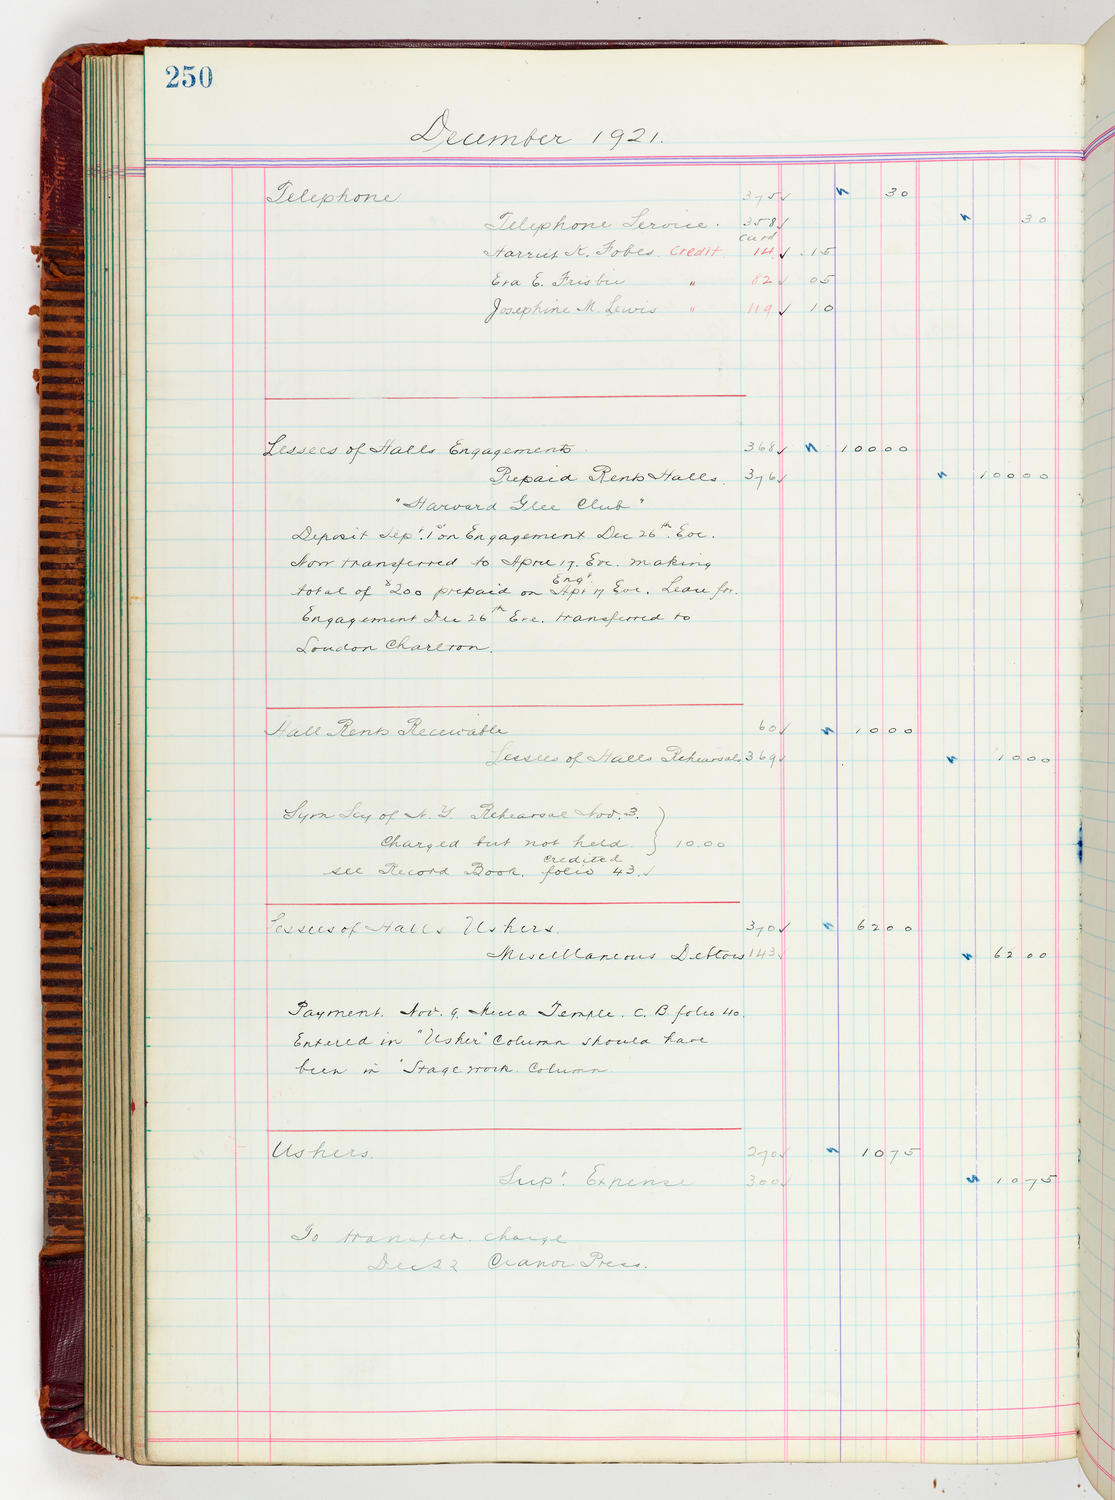 250
December 1921.
Telephone 375✓ 30
Telephone Service. 358✓ 30
Card
Harriet K. Fobes Credit 14✓ .15
Eva E. Frisbie " 82✓ 05
Josephine M. Lewis " 119✓ 10
Lessees of Halls Engagements 368✓ 10000
Prepaid Rents Halls. 376✓ 10000
"Harvard Glee Club"
Deposit Sept. 1st on Engagement Dec 26th. Eve.
Now transferred to April 17. Eve. making
Engt.
total of $200 prepaid on Apr 17 Eve. Lease for
Engagement Dec 26th Eve. transferred to
Loudon Charlton.
Hall Rents Receivable 60✓ 1000
Lessees of Halls Rehearsals 369✓ 1000
Sym Socy of N.Y. Rehearsal Nov. 3.
Charged but not held. } 10.00
credited
see Record Book. folio 43.✓
Lessees of Halls Ushers. 370✓ 6200
Miscellaneous Debtors 143✓ 6200
Payment. Nov. 9. Mecca Temple. C. B. folio 40.
Entered in "Usher" Column should have
been in "Stage work. Column
Ushers. 270✓ 1075
Supt. Expense 300✓ 1075
To transfer. charge
Dec 22 Cranor Press.